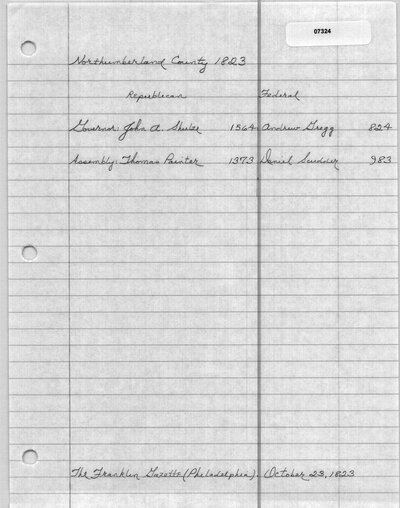 07324
Northumberland County 1823
Republican Federal
Governor: John A. Shulze 1564 Andrew Gregg 824
Assembly: Thomas Painter 1373 Daniel Scudder 983
The Franklin Gazette (Philadelphia). October 23, 1823